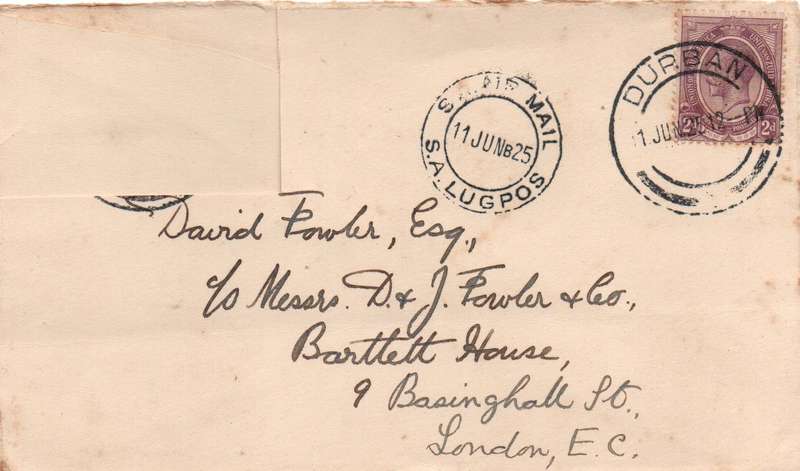 S.A. AIR MAIL
11 JUN B 25
S.A. LUGPOS
DURBAN
11 JUN 25 12 - PM
2d 2d
David Fowler, Esq.,
c/o Messrs. D. & J. Fowler & Co.,
Bartlett House,
9 Basinghall St.,
London, E.C.